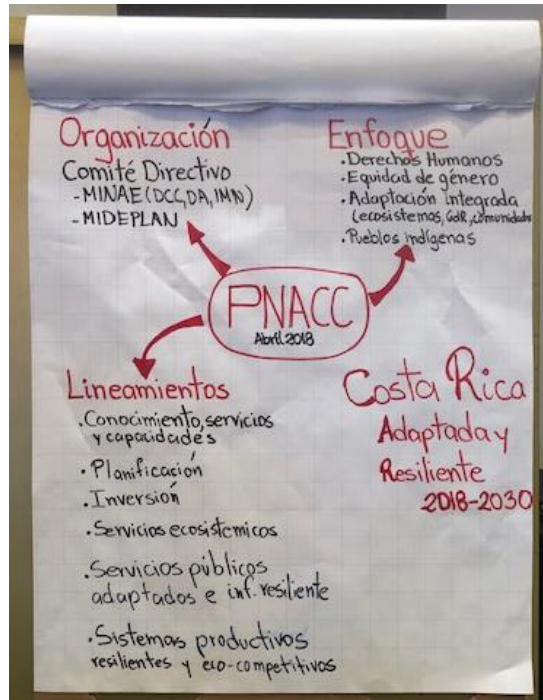 Organización
Comité Directivo
- MINAE (DCC, DA, IMN)
- MIDEPLAN
Enfoque
. Derechos Humanos
. Equidad de género
. Adaptación integrada
(ecosistemas, GdR, comunidades
. Pueblos indígenas
PNACC
Abril 2018
Lineamientos
. Conocimiento, servicios
y capacidades
. Planificación
. Inversión
. Servicios ecosistemicos
. Servicios públicos
adaptados e inf. resiliente
. Sistemas productivos
resilientes y eco-competitivos
Costa Rica
Adaptada y
Resiliente
2018-2030